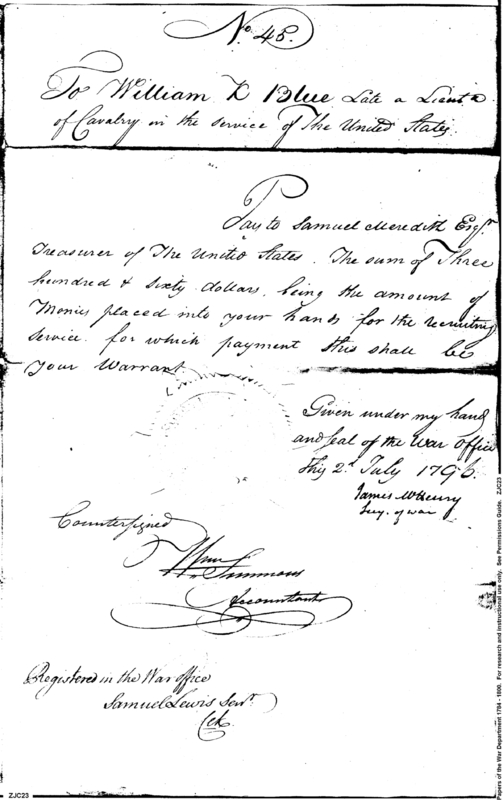 No. 48.
To William K Blue Late a Lieut.
of Cavalry in the service of The United States.
Pay to Samuel Meredith Esqr.
Treasurer of The United States. The sum of Three
hundred & sixty dollars, being the amount of
Monies placed into your hands for the recruiting
service. for which payment this shall be
your Warrant
Given under my hand
and seal of the War Office
this 2d. July 1796.
James McHenry
Secy. of war
Countersigned
Wm Simmons
Accountant
Registered in the War office
Samuel Lewis Senr.
Clk.
ZJC23
Papers of the War Department 1784 - 1800. For research and instructional use only. See Permissions Guide. ZJC23